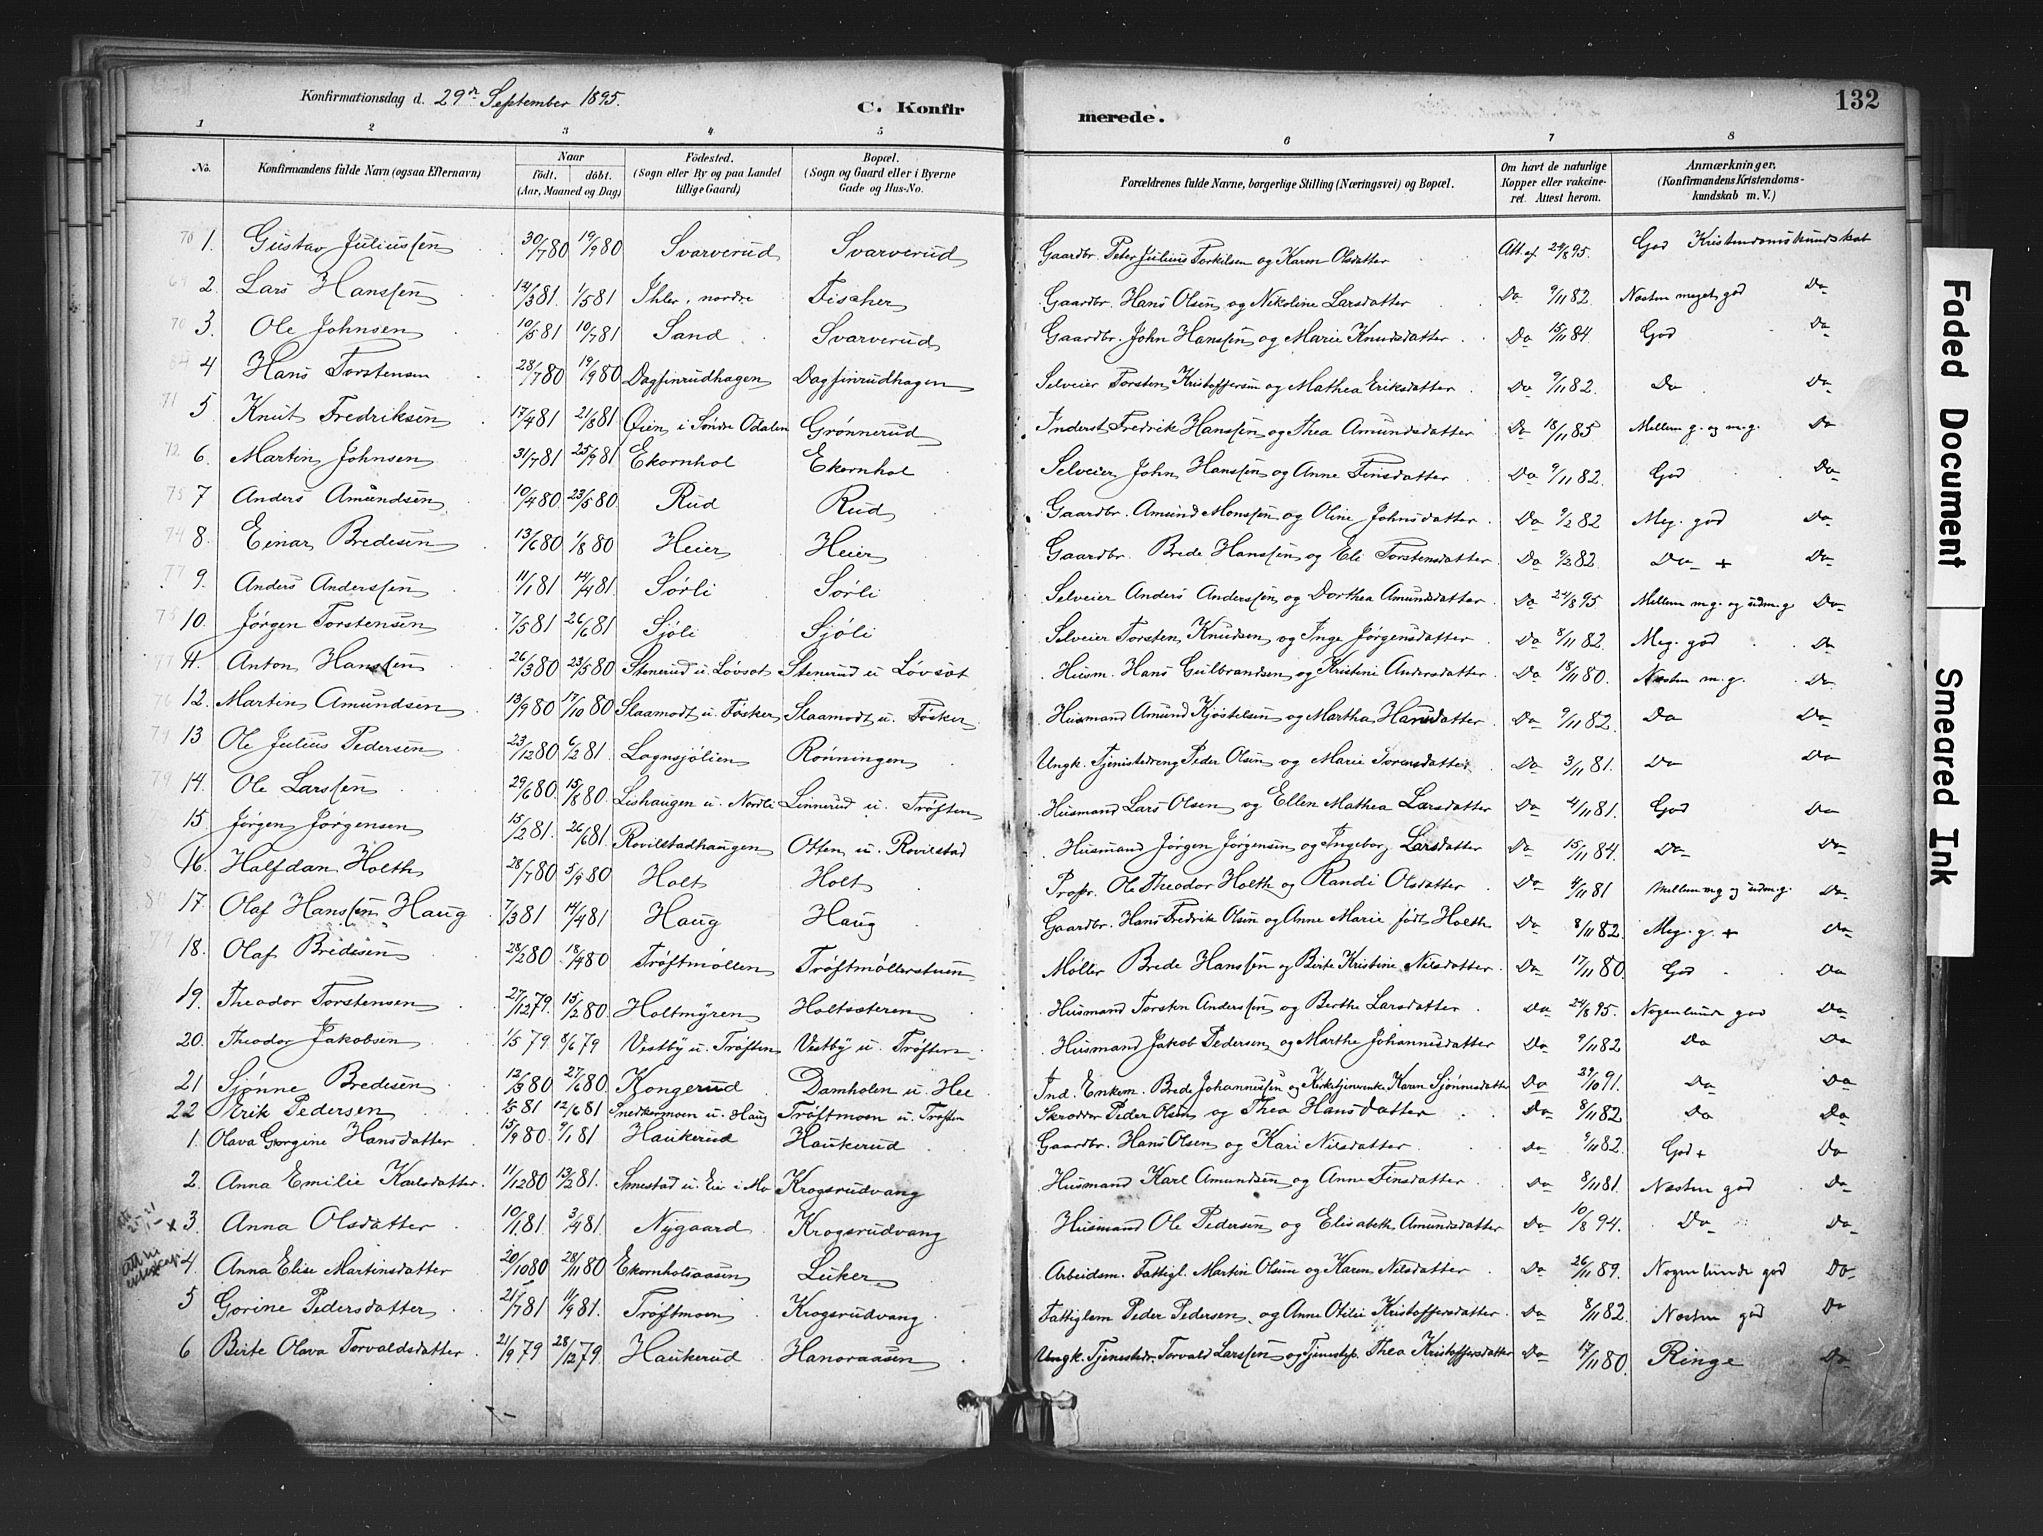 Konfirmationsdag d. 29de September 1895.
C. Konfirmerede.
132
1 2 3 4 5 6 7 8
No. Konfirmandens fulde Navn (ogsaa Efternavn) Naar født. døbt. (Aar, Maaned og Dag) Födested. (Sogn eller By og paa Landet tillige Gaard) Bopæl. (Sogn og Gaard eller i Byerne Gade og Hus-No. Forældrenes fulde Navne, borgerlige Stilling (Næringsvei) og Bopæl. Om havt de naturlige Kopper eller vakcineret. Attest herom. Anmærkninger. (Konfirmandens Kristendomskundskab m. V.)
1. Gustav Juliussen 30/7 80 19/9 80 Svarverud Svarverud Gaardbr. Peter Julius Torkilsen og Karen Olsdatter Att. af 24/8 95. God Kristendomskundskab
2. Lars Hanssen 14/3 81. 1/5 81 Ihler, nordre Fischer Gaardbr. Hans Olsen og Nikoline Larsdatter Do 9/11 82. Næsten meget god Do
3. Ole Johnsen 10/5 81 10/7 81 Sand Svarverud Gaardbr. John Hanssen og Marie Knudsdatter Do 15/11 84. God Do
4 Hans Torstensen 28/7 80 19/9 80 Dagfinrudhagen Dagfinrudhagen Selveier Torsten Kristoffersen og Mathea Eriksdatter Do 9/11 82. Do Do
5 Knut Fredriksen 17/4 81 21/8 81 Øien i Søndre Odalen Grønnerud Inderst Fredrik Hanssen og Thea Amundsdatter Do 18/11 85. Mellem g. og m.g. Do
6. Martin Johnsen 31/7 81 25/9 81 Ekornhol Ekornhol Selveier John Hanssen og Anne Finsdatter Do 9/11 82. God Do
7 Anders Amundsen 10/4 80 23/5 80 Rud Rud Gaardbr. Amund Monssen og Oline Johnsdatter Do 9/2 82 Meg. god Do
8. Einar Bredesen 13/6 80 1/8 80 Heier Heier Gaardbr. Brede Hanssen og Eli Torstensdatter Do 9/2 82. Do + Do
9. Anders Anderssen 11/1 81 14/4 81. Sørli Sørli Selveier Anders Anderssen og Dorthea Amundsdatter Do 24/8 95 Mellem m.g. og udm.g Do
10. Jørgen Torstensen 7/5 81 26/6 81 Sjøli Sjøli Selveier Torsten Knudsen og Inge Jørgensdatter Do 8/11 82. Meg. god Do
11. Anton Hanssen 26/3 80 23/5 80 Stenerud u. Løvsæt Stenerud u Løvsæt Husm. Hans Gulbrandsen og Kristine Andersdatter Do 18/11 80. Næsten m.g. Do
12. Martin Amundsen 13/9 80 17/10 80 Slaamodt u. Fösker Slaamodt u. Fösker Husmand Amund Kjøstelsen og Martha Hansdatter Do 9/11 82. Do Do
13 Ole Julius Pedersen 23/12 80 6/2 81 Lognsjølien Rønningen Ungk. Tjenestedreng Peder Olsen og Marie Torensdatter Do 3/11 81. Do Do
14. Ole Larssen 29/6 80 15/8 80 Lishaugen u. Nordli Linnerud u. Trøften Husmand Lars Olsen og Ellen Mathea Larsdatter Do 4/11 81. God Do
15 Jørgen Jørgensen 15/2 81. 26/6 81. Rovilstadhaugen Otten u. Rovilstad Husmand Jørgen Jørgensen og Ingeborg Larsdatter Do 15/11 84. Do Do
16. Halfdan Holth 28/7 80 5/9 80 Holt Holt Propr. Ole Theodor Holth og Randi Olsdatter Do 4/11 81 Mellem m.g og udm.g. Do
17. Olaf Hanssen Haug 7/3 81 14/4 81 Haug Haug Gaardbr. Hans Fredrik Olsen og Anne Marie født Holth Do 8/11 82. Meg. g. + Do
18. Olaf Bredesen 28/2 80 18/4 80 Trøftmøllen Trøftmøllerstuen Møller Brede Hanssen og Birte Kristine Nilsdatter. Do 17/11 80. God Do
19. Theodor Torstensen 27/12 79. 15/2 80. Holtmyren Holtsæteren Husmand Torsten Anderssen og Berthe Larsdatter Do 24/8 95. Nogenlunde god Do
20. Theodor Jakobsen 1/5 79 8/6 79 Vestby u. Trøften Vestby u. Trøften Husmand Jakob Pedersen og Marthe Johannesdatter Do 9/11 82 Do Do
21 Sjønne Bredesen 12/3 80 27/6 80 Kongerud Damholen u. Hee Ind. Enkem. Brede Johannessen og Kirketjenerenke Karen Sjønnesdatter Do 29/10 91. Do Do
22 Erik Pedersen 81 12/6 81 Snedkermoen u. Haug Trøftmoen u. Trøften Skrædder Peder Olsen og Thea Hansdatter Do 8/11 82 Do Do
1. Olava Gorgine Hansdatter 15/9 80. 9/1 81 Haukerud Haukerud Gaardbr. Hans Olsen og Kari Nilsdatter Do 9/11 82. God + Do
2. Anna Emilie Karlsdatter. 11/12 80 13/2 81. Smestad u. Eier i Mo Krogsrudvang Husmand Karl Amundsen og Anne Finsdatter Do 8/11 81. Næsten god Do
x 3. Anna Olsdatter 10/1 81 3/4 81 Nygaard Krogsrudvang Husmand Ole Pedersen og Elisabeth Amundsdatter Do 10/8 94. Do Do
4. Anna Elise Martinsdatter 20/10 80 28/11 80 Ekornholsaasen Luker Arbeidsm. Fattigl. Martin Olsen og Karen Nilsdatter Do 26/11 89. Nogenlunde god Do
5 Gorine Pedersdatter 21/7 81 11/9 81. Trøftmoen Krogsrudvang Fattiglem Peder Pedersen og Anne Otilie Kristoffersdatter Do 8/11 82. Næsten god Do
6 Birte Olava Torvaldsdatter 21/9 79 28/12 79 Haukerud Hanoraasen Ungk. Tjenestedr. Torvald Larssen og Tjenestep. Thea Kristoffersdatter Do 17/11 80. Ringe Do
Faded Document
Smeared Ink